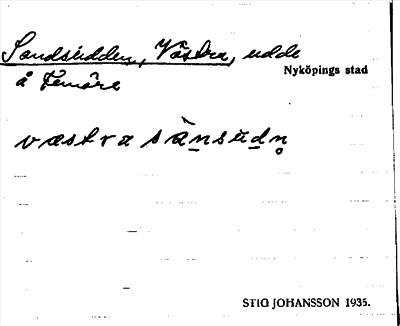 Sandsudden, Västra, udde
Nyköpings stad
å Femöre
væstra sànsudn̥
STIG JOHANSSON 1935.